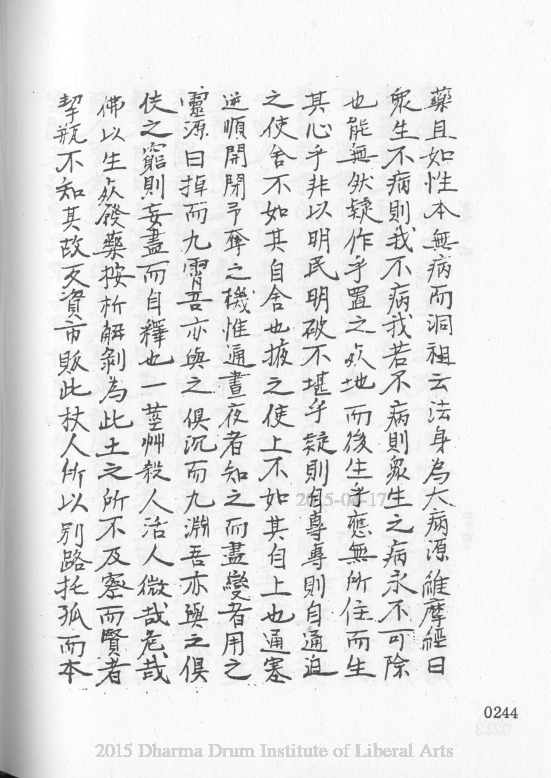 藥且如性本無病而洞祖云法身為大病源維摩經曰
眾生不病則我不病我若不病則眾生之病永不可除
也能無然疑作乎置之死地而後生乎應無所住而生
其心乎非以明民明破不堪乎疑則自專專則自通迫
之使舍不如其自舍也掖之使上不如其自上也通塞
逆順開閉予奪之機惟通晝夜者知之而盡變者用之
靈源曰掉而九霄吾亦與之俱沉而九淵吾亦與之俱
佚之窮則妄盡而自釋也一莖艸殺人活人微哉危哉
佛以生死發藥按析解剝為此土之所不及察而賢者
挈瓶不知其故反資市販此杖人所以別路托孤而本
2015-04-17
0244
2015 Dharma Drum Institute of Liberal Arts